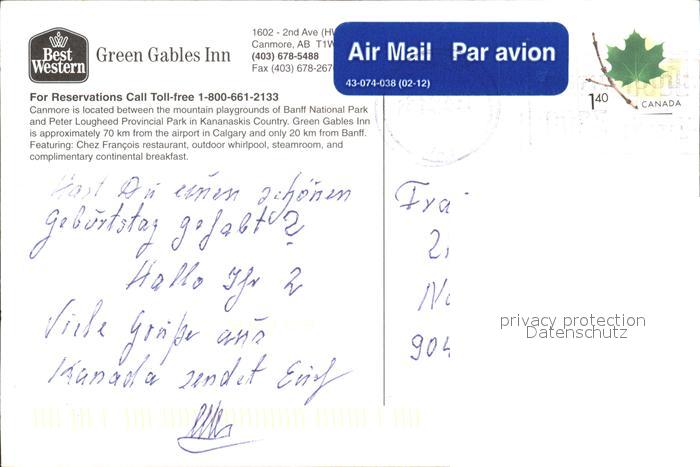 Best
Western
Green Gables Inn
1602 - 2nd Ave
Canmore, AB T1W
(403) 678-5488
Fax (403) 678-267
Air Mail Par avion
43-074-038 (02-12)
1.40
CANADA
For Reservations Call Toll-free 1-800-661-2133
Canmore is located between the mountain playgrounds of Banff National Park
and Peter Lougheed Provincial Park in Kananaskis Country. Green Gables Inn
is approximately 70 km from the airport in Calgary and only 20 km from Banff.
Featuring: Chez François restaurant, outdoor whirlpool, steamroom, and
complimentary continental breakfast.
Hast Du einen schönen
Geburtstag gehabt?
Hallo Ihr 2
Viele Grüße aus
Kanada sendet Euch
Fra
2
N
904
privacy protection
Datenschutz